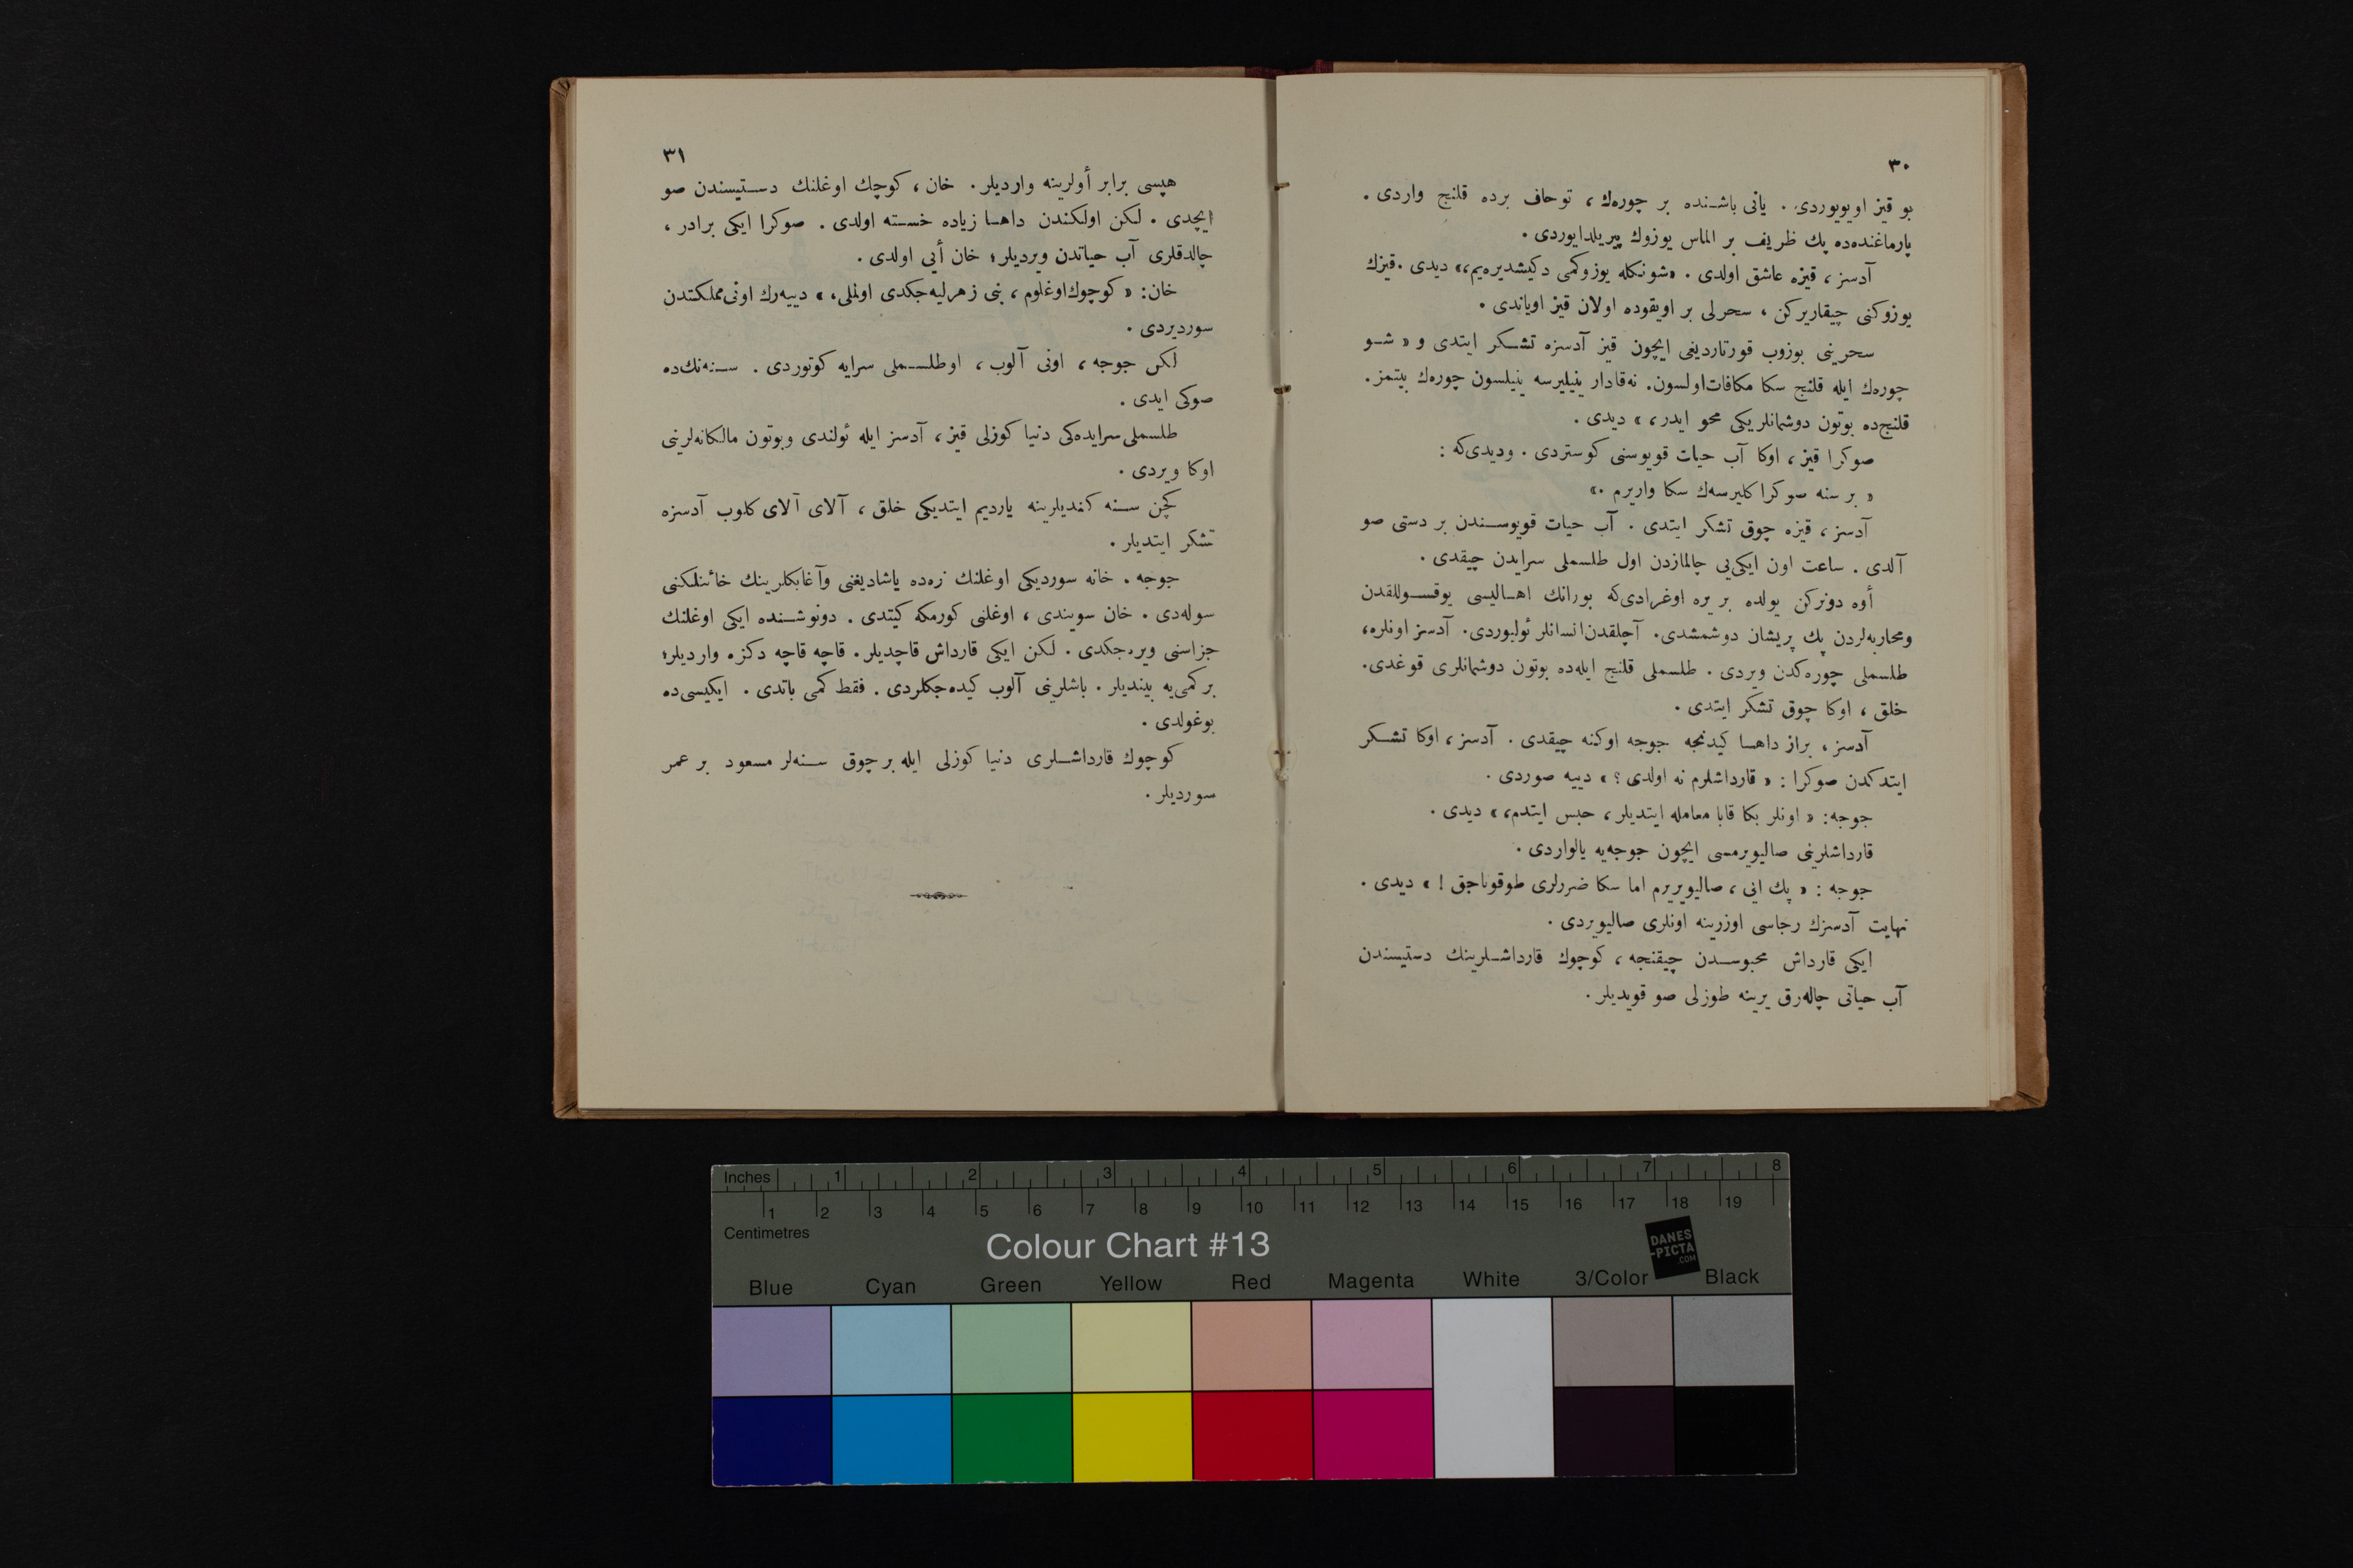 ٣٠
بو قیز اویویوردی. یانی باشنده بر چوره‌ك، توحاف برده قلنج واردی.
پارماغنده‌ده پك ظریف بر الماس یوزوك پیریلدایوردی.
آدسز، قیزه عاشق اولدی. «شونکله یوزوکمی دکیشدیره‌یم،» دیدی. قیزك
یوزوکنی چیقاریرکن، سحرلی بر اویقوده اولان قیز اویاندی.
سحرینی بوزوب قورتاردیغی ایچون قیز آدسزه تشکر ایتدی و «شو
چوره‌ك ایله قلنج سکا مکافات اولسون. نه‌قادار ییلیرسه ییلسون چوره‌ك بیتمز.
قلنج‌ده بوتون دوشمانلریکی محو ایدر،» دیدی.
صوکرا قیز، اوکا آب حیات قویوسنی کوستردی. ودیدی‌که:
«بر سنه صوکرا کلیرسه‌ك سکا واریرم.»
آدسز، قیزه چوق تشکر ایتدی. آب حیات قویوسندن بر دستی صو
آلدی. ساعت اون ایکی‌یی چالمازدن اول طلسملی سرایدن چیقدی.
أوه دونرکن یولده بر یره اوغرادی‌که بورانك اهالیسی یوقسوللقدن
ومحاربه‌لردن پك پریشان دوشمشدی. آچلقدن انسانلر ئولیوردی. آدسز اونلره،
طلسملی چوره‌کدن ویردی. طلسملی قلنج ایله‌ده بوتون دوشمانلری قوغدی.
خلق، اوکا چوق تشکر ایتدی.
آدسز، براز داها کیدنجه جوجه اوکنه چیقدی. آدسز، اوکا تشکر
ایتدکدن صوکرا: «قارداشلرم نه اولدی؟» دییه صوردی.
جوجه: «اونلر بکا قابا معامله ایتدیلر، حبس ایتدم،» دیدی.
قارداشلرینی صالیویرمسی ایچون جوجه‌یه یالواردی.
جوجه: «پك ایی، صالیویریرم اما سکا ضررلری طوقوناجق!» دیدی.
نهایت آدسزك رجاسی اوزرینه اونلری صالیویردی.
ایکی قارداش محبوسدن چیقنجه، کوچوك قارداشلرینك دستیسندن
آب حیاتی چاله‌رق یرینه طوزلی صو قویدیلر.
٣١
هپسی برابر أولرینه واردیلر. خان، کوچك اوغلنك دستیسندن صو
ایچدی. لکن اولکندن داها زیاده خسته اولدی. صوکرا ایکی برادر،
چالدقلری آب حیاتدن ویردیلر؛ خان أیی اولدی.
خان: «کوچوك اوغلوم، بنی زهرلیه‌جکدی اوملی،» دییه‌رك اونی مملکتدن
سوردیردی.
لکن جوجه، اونی آلوب، اوطلسملی سرایه کوتوردی. سنه‌نك‌ده
صوکی ایدی.
طلسملی سرایده‌کی دنیا کوزلی قیز، آدسز ایله ئولندی وبوتون مالکانه‌لرینی
اوکا ویردی.
کچن سنه کندیلرینه یاردیم ایتدیکی خلق، آلای آلای کلوب آدسزه
تشکر ایتدیلر.
جوجه. خانه سوردیکی اوغلنك نره‌ده یاشادیغنی وآغابکلرینك خائنلکنی
سوله‌دی. خان سویندی، اوغلنی کورمکه کیتدی. دونوشنده ایکی اوغلنك
جزاسنی ویره‌جکدی. لکن ایکی قارداش قاچدیلر. قاچه قاچه دکزه واردیلر؛
بر کمی‌یه بیندیلر. باشلرینی آلوب کیده‌جکلردی. فقط کمی باتدی. ایکیسی‌ده
بوغولدی.
کوچوك قارداشلری دنیا کوزلی ایله بر چوق سنه‌لر مسعود بر عمر
سوردیلر.
Inches 1 2 3 4 5 6 7 8
1 2 3 4 5 6 7 8 9 10 11 12 13 14 15 16 17 18 19
Centimetres
Colour Chart #13
DANES
-PICTA
.COM
Blue Cyan Green Yellow Red Magenta White 3/Color Black